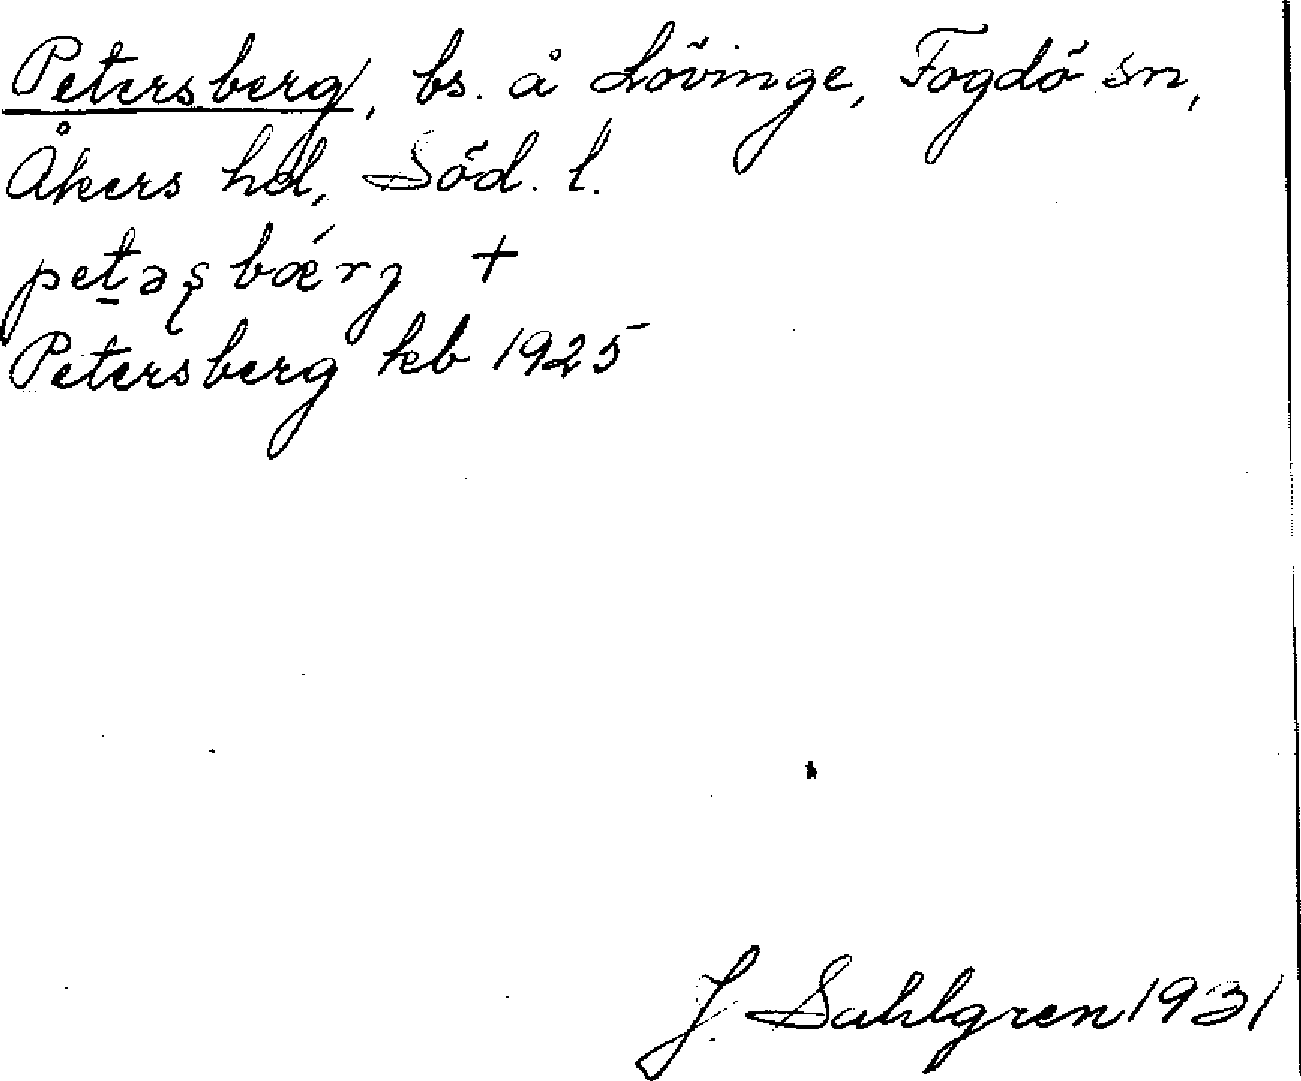 Petersberg, bs. å Lövinge, Fogdö sn,
Åkers hd, Söd. l.
pet̠əʂbǽrȷ +
Petersberg kb 1925
J. Sahlgren 1931